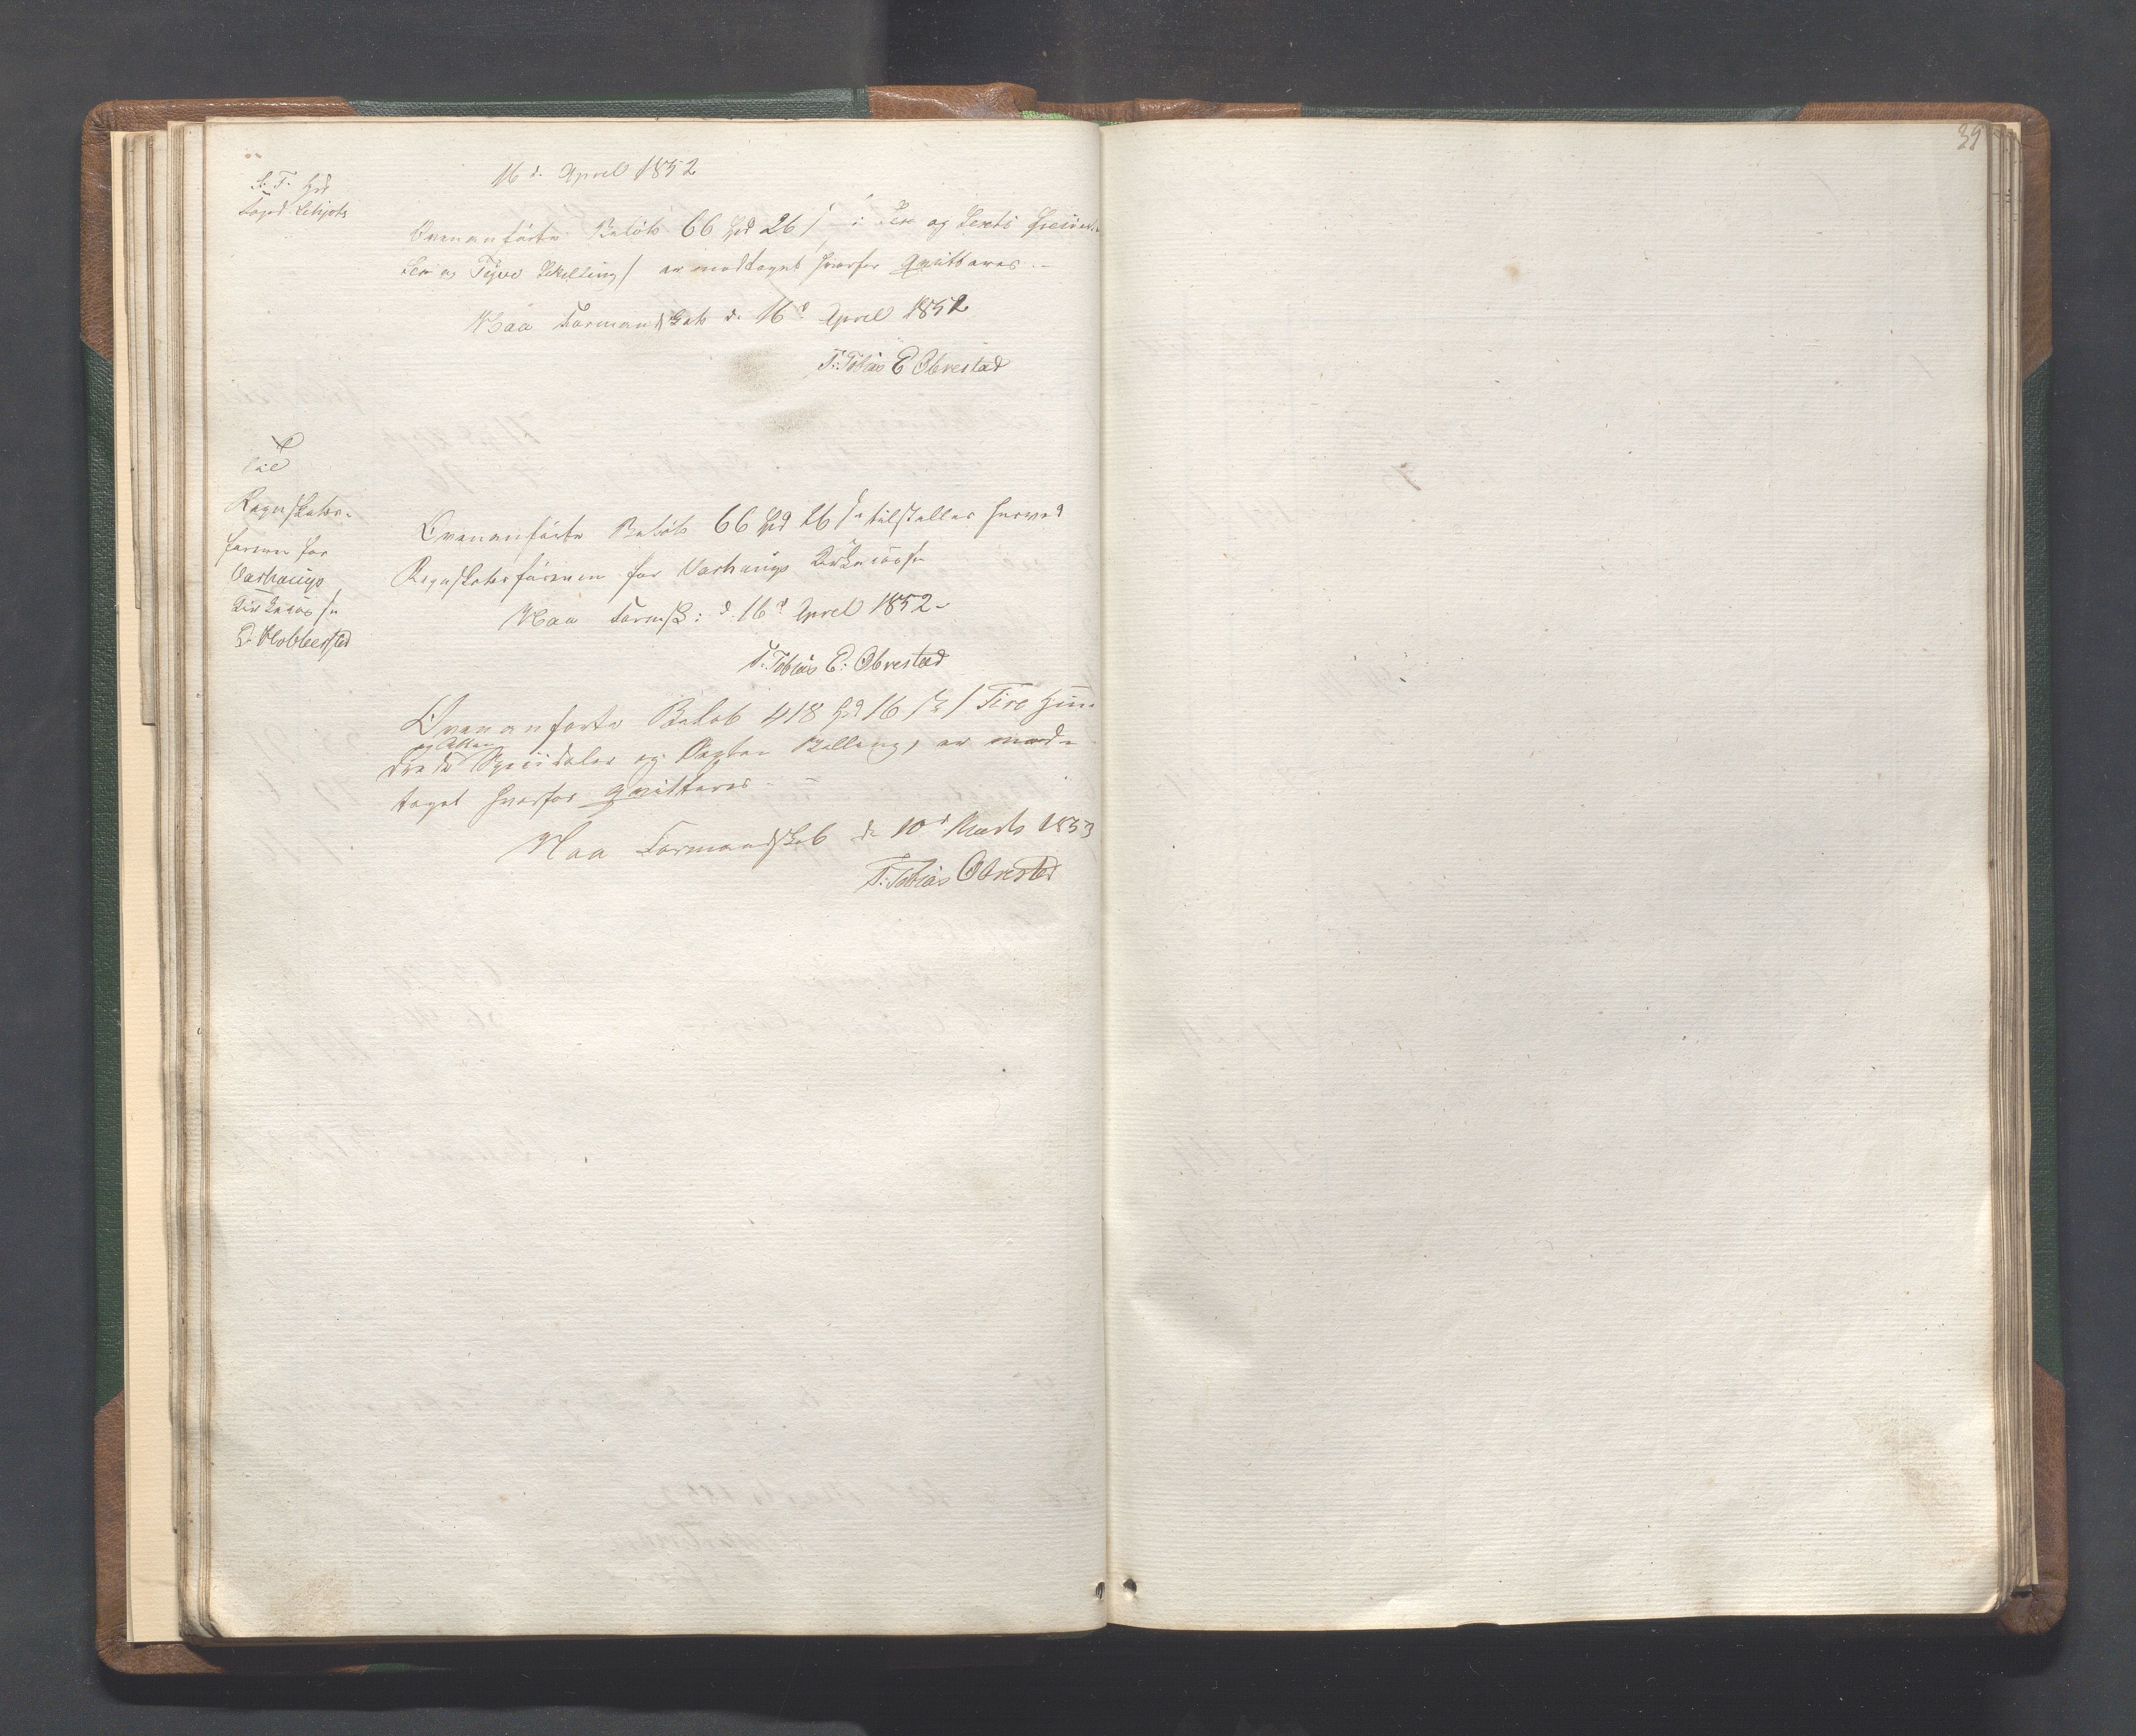 39
16 d. April 1852
S. T. Hrd
Foged
Ovenanførte Beløb 66 Spd 26 s : Sex og Sexti
Sex og Tyve Skilling/ er modtaget hvorfor Qvitteres
Haa Formandskab d. 16d April 1852
T: Tobias E Obrestad
Til
Regnskabs-
føreren for
Varhaugs
Ovenanførte Beløb 66 Spd 26 s tilstilles herved
Regnskabsføreren for Varhaugs
Haa Formsk: d. 16d April 1852
T. Tobias E: Obrestad
Ovenanførte Beløb 418 Spd 16 s / Fire Hun-
drede og Atten Speciedaler og Sexten Skilling, er mod-
taget hvorfor qvitteres
Haa Formandskab d. 10d Marts 1853
T: Tobias Obrestad